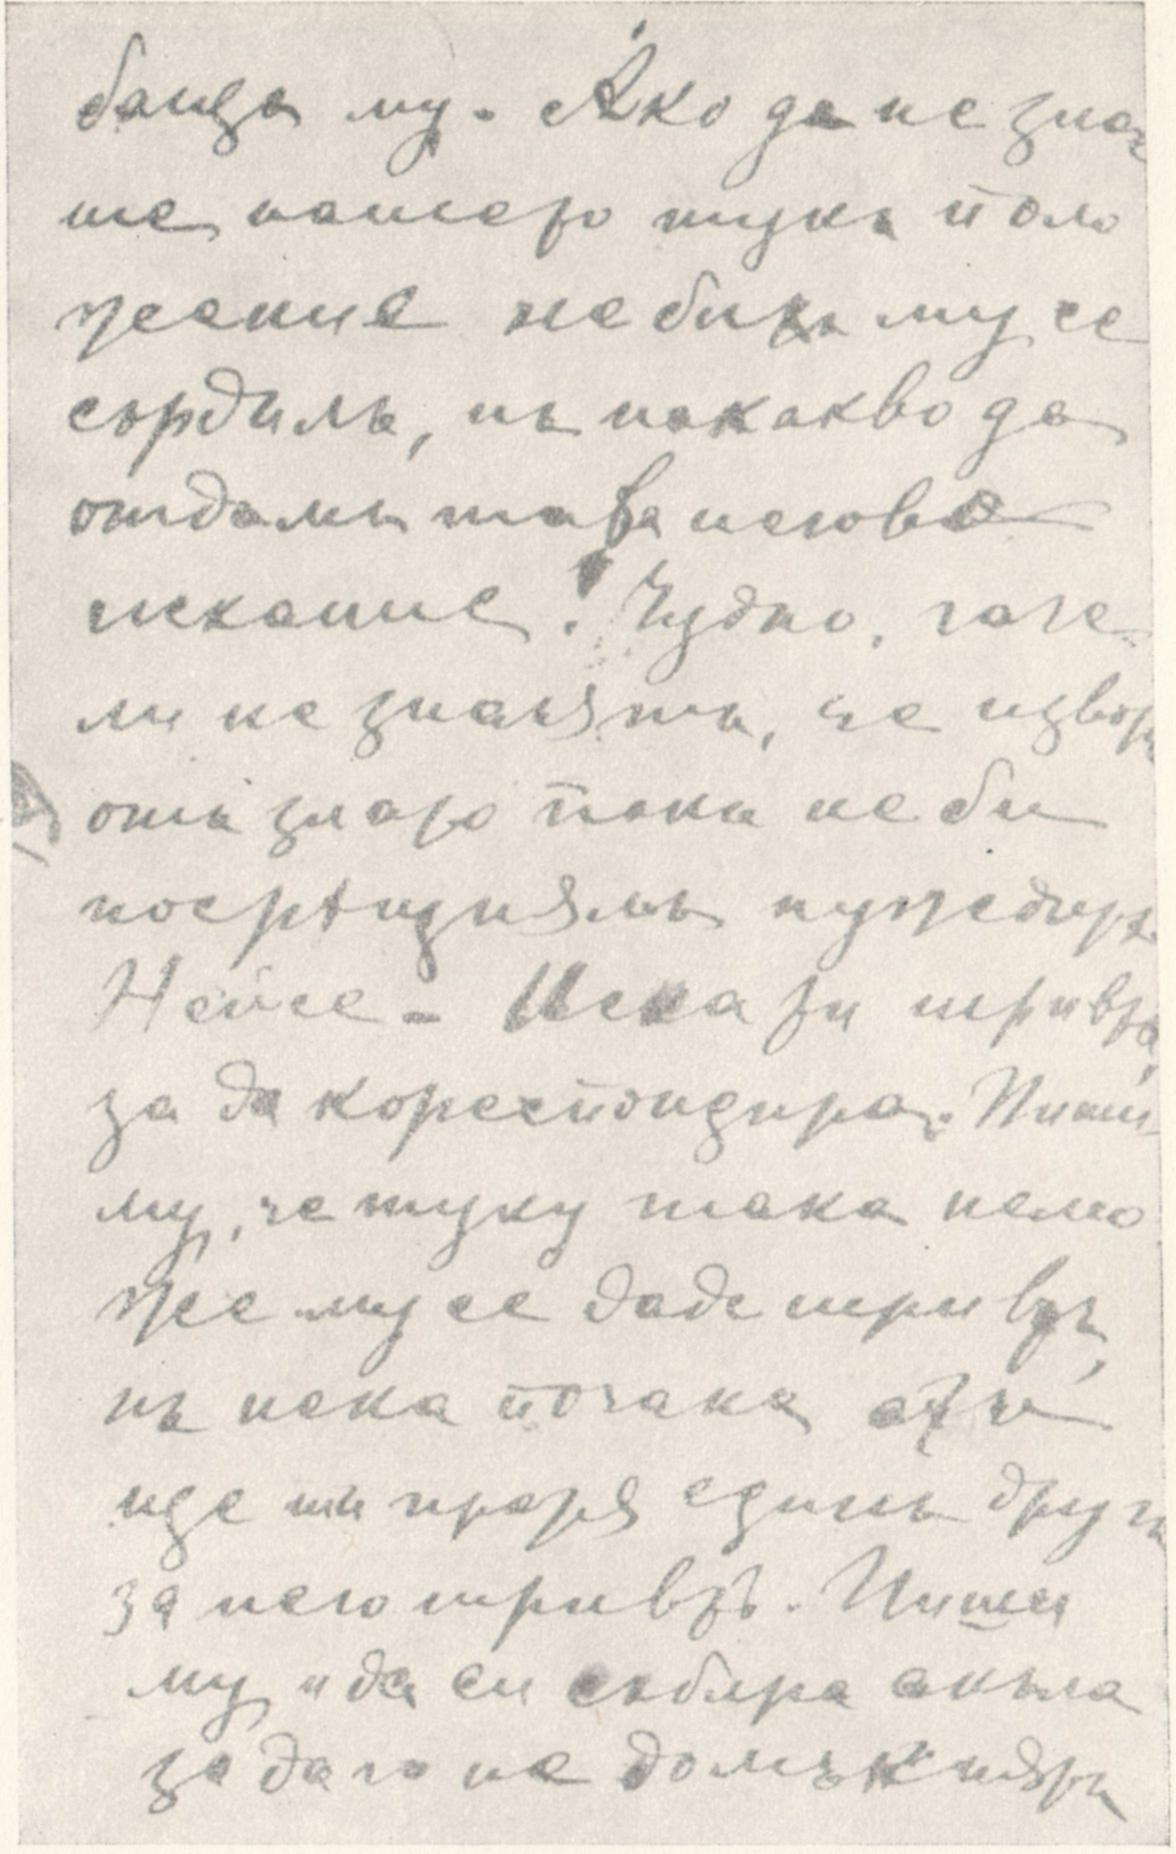 баща му. Ако да не зная
ше нашето тукъ поло
жение не бихъ му се
сърдилъ, нъ на какво да
отдамъ това негово
искание! Чудно, гаче
ли не знаеятъ, че изворъ
отъ злато пакъ не би
посрѣщналъ нуждитѣ.
Нейсе – Иска ти шривтъ,
за да кореспондира. Пиши
му, че туку така немо
же му се даде шривтъ,
нъ нека почака
ще ти пратя единъ другъ
за него шривтъ. Пиши
му и да си събира акъла
за да го не домъкнятъ